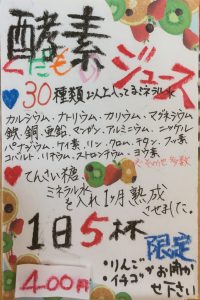 酵素
くだもの
ジュース
30種類以上入ってるミネラル水
カルシウム、ナトリウム、カリウム、マグネシウム
鉄、銅、亜鉛、マンガン、アルミニウム、ニッケル
バナジウム、ケイ素、リン、クロム、チタン、フッ素
コバルト、リチウム、ストロンチウム、ヨウ素
その他多数
てんさい糖
ミネラル水
を入れ1ヶ月熟成
させました。
1日5杯
限定
400円
・りんご
・イチゴ
お聞き
下さい